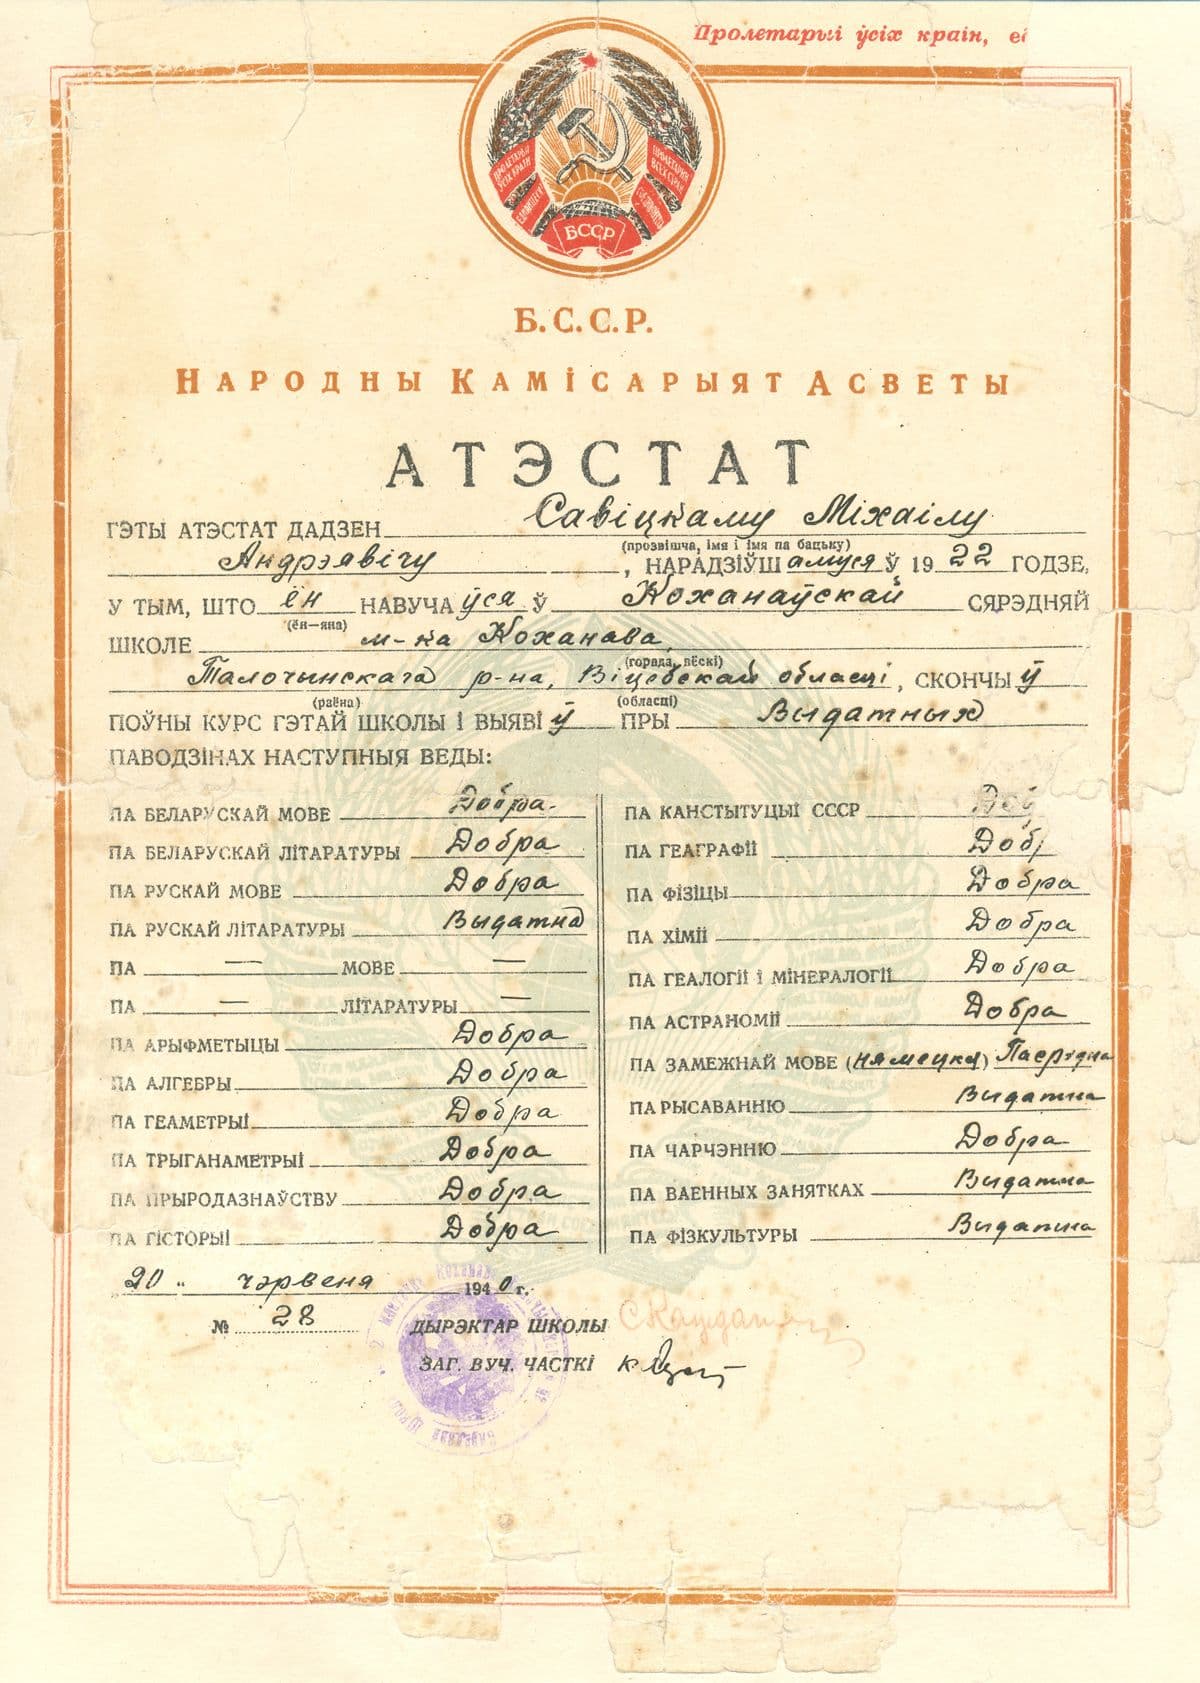 Пролетарыі ўсіх краін,
ПРОЛЕТАРЫІ ЎСІХ КРАІН
ПРОЛЕТАРИИ ВСЕХ СТРАН
БССР
Б.С.С.Р.
НАРОДНЫ КАМІСАРЫЯТ АСВЕТЫ
АТЭСТАТ
ГЭТЫ АТЭСТАТ ДАДЗЕН Савіцкаму Міхаілу
(прозвішча, імя і імя па бацьку)
Андрэявічу, НАРАДЗІЎШамуся Ў 1922 ГОДЗЕ,
У ТЫМ, ШТО ён НАВУЧАўся Ў Коханаўскай СЯРЭДНЯЙ
(ён—яна)
ШКОЛЕ м-ка Коханава,
(горада, вёскі)
Талочынскага р-на, Віцебскай обласці, СКОНЧЫў
(раёна) (обласці)
ПОЎНЫ КУРС ГЭТАЙ ШКОЛЫ І ВЫЯВІў ПРЫ Выдатных
ПАВОДЗІНАХ НАСТУПНЫЯ ВЕДЫ:
ПА БЕЛАРУСКАЙ МОВЕ Добра.
ПА БЕЛАРУСКАЙ ЛІТАРАТУРЫ Добра
ПА РУСКАЙ МОВЕ Добра
ПА РУСКАЙ ЛІТАРАТУРЫ Выдатна
ПА — МОВЕ —
ПА — ЛІТАРАТУРЫ —
ПА АРЫФМЕТЫЦЫ Добра
ПА АЛГЕБРЫ Добра
ПА ГЕАМЕТРЫІ Добра
ПА ТРЫГАНАМЕТРЫІ Добра
ПА ПРЫРОДАЗНАЎСТВУ Добра
ПА ГІСТОРЫІ Добра
ПА КАНСТЫТУЦЫІ СССР Доб
ПА ГЕАГРАФІІ Доб
ПА ФІЗІЦЫ Добра
ПА ХІМІІ Добра
ПА ГЕАЛОГІІ І МІНЕРАЛОГІІ Добра
ПА АСТРАНОМІІ Добра
ПА ЗАМЕЖНАЙ МОВЕ (нямецкая) Пасрэдна
ПА РЫСАВАННЮ Выдатна
ПА ЧАРЧЭННЮ Добра
ПА ВАЕННЫХ ЗАНЯТКАХ Выдатна
ПА ФІЗКУЛЬТУРЫ Выдатна
20 " чэрвеня 1940 г.
№ 28
ДЫРЭКТАР ШКОЛЫ
ЗАГ. ВУЧ. ЧАСТКІ